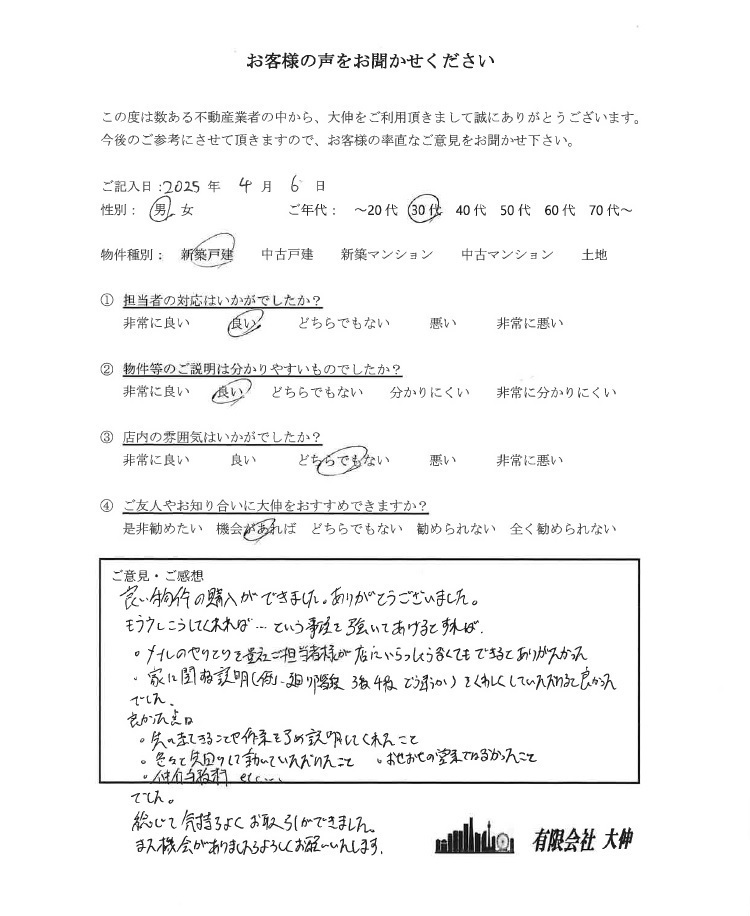 お客様の声をお聞かせください
この度は数ある不動産業者の中から、大伸をご利用頂きまして誠にありがとうございます。
今後のご参考にさせて頂きますので、お客様の率直なご意見をお聞かせ下さい。
ご記入日：2025 年 4 月 6 日
性別： 男 女 ご年代： ～20代 30代 40代 50代 60代 70代～
物件種別： 新築戸建 中古戸建 新築マンション 中古マンション 土地
① 担当者の対応はいかがでしたか？
非常に良い 良い どちらでもない 悪い 非常に悪い
② 物件等のご説明は分かりやすいものでしたか？
非常に良い 良い どちらでもない 分かりにくい 非常に分かりにくい
③ 店内の雰囲気はいかがでしたか？
非常に良い 良い どちらでもない 悪い 非常に悪い
④ ご友人やお知り合いに大伸をおすすめできますか？
是非勧めたい 機会があれば どちらでもない 勧められない 全く勧められない
ご意見・ご感想
良い物件の購入ができました。ありがとうございました。
もう少しこうしてくれれば…という事を強いてあげるとすれば、
・メールのやりとりを ご担当者様が店にいらっしゃらなくてもできるとありがたかった
・家に関する説明（ ）をくわしくしていただけると良かった
でした。
良かった点は
・先 できることや作業を 説明してくれたこと
・色々と先回りして動いていただけたこと ・おせおせの営業でなかったこと
・仲介手数料 etc...
でした。
総じて気持ちよくお取引ができました。
また機会がありましたらよろしくお願いいたします。
有限会社 大伸